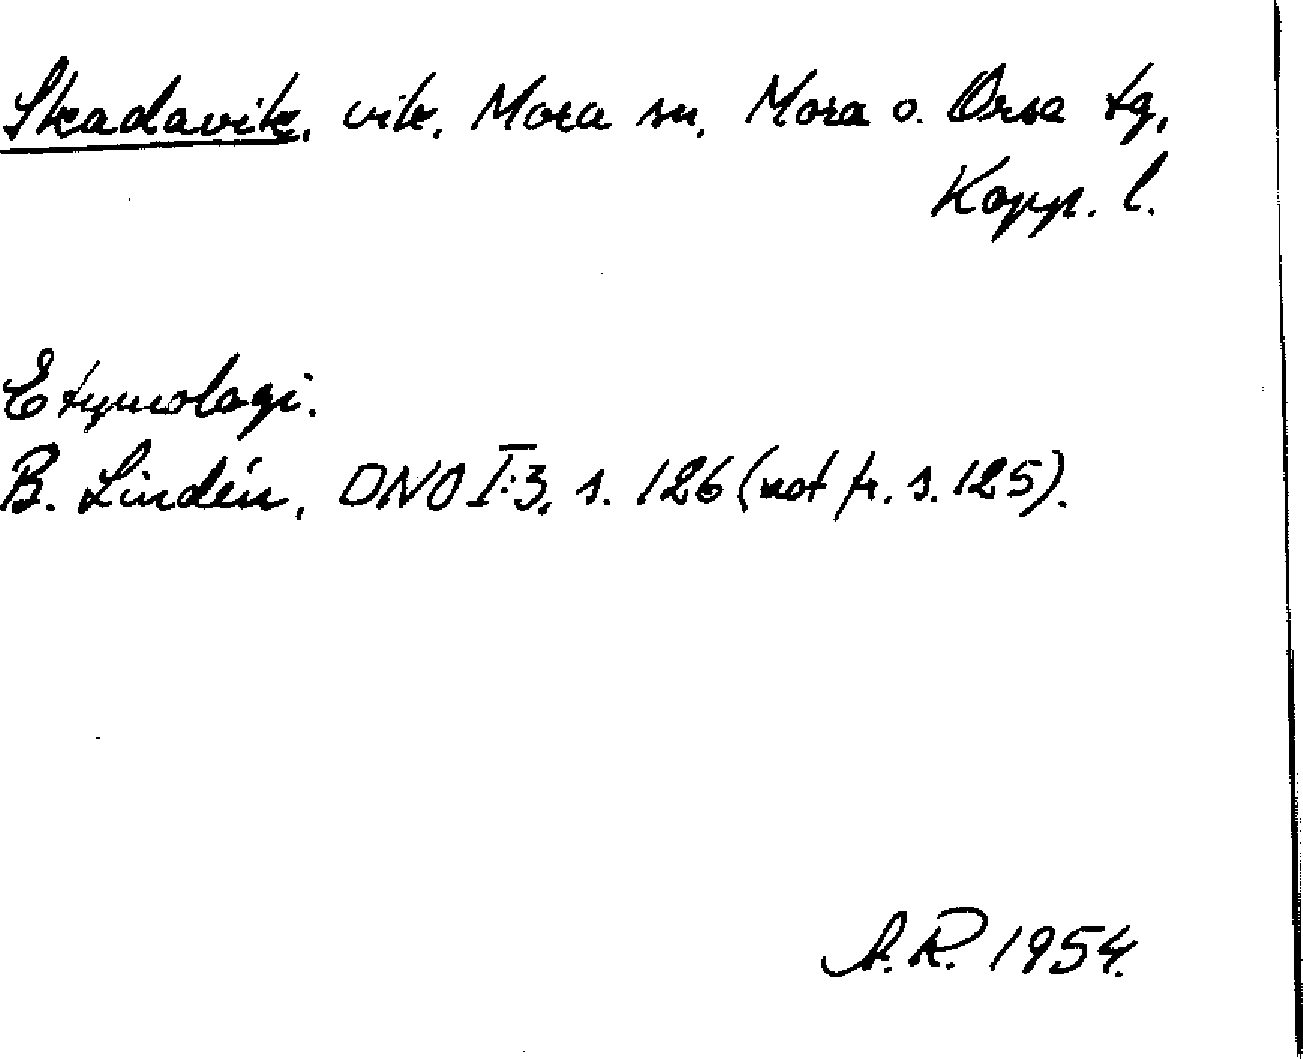 Skadavik, vik, Mora sn, Mora o. Orsa tg,
Kopp. l.
Etymologi.
B. Lindén, DNO I:3, s. 126 (not fr. s. 125).
A. R. 1954.